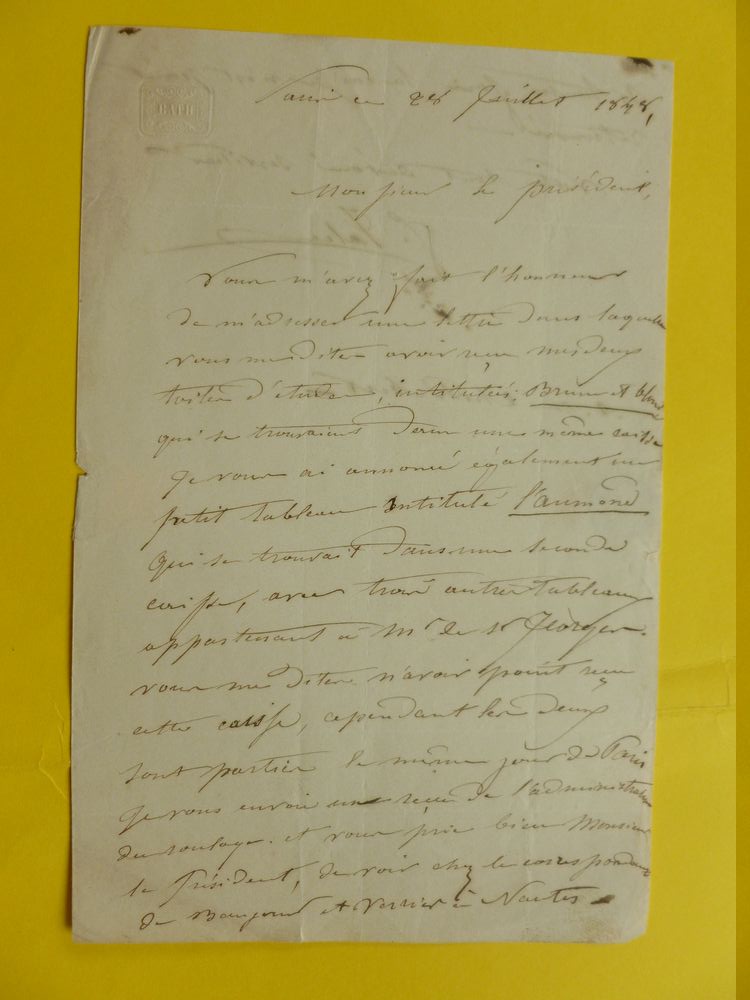 BATH
Paris ce 28 Juillet 1848,
Monsieur le président,
Vous m'avez fait l'honneur
de m'adresser une lettre dans laquelle
vous me dites avoir reçu mes deux
toiles d'étude, intitulées: Brune et blonde
qui se trouvaient dans une même caisse
Je vous ai annoncé également un
petit tableau intitulé l'aumône
qui se trouvait dans une seconde
caisse, avec trois autres tableaux
appartenant à Mr de St Georges.
vous me dites n'avoir point reçu
cette caisse, cependant les deux
sont parties le même jour de Paris
Je vous envoie un reçu de l'administration
du roulage. et vous prie bien Monsieur
le Président, de voir chez le correspondant
de et Verrier à Nantes